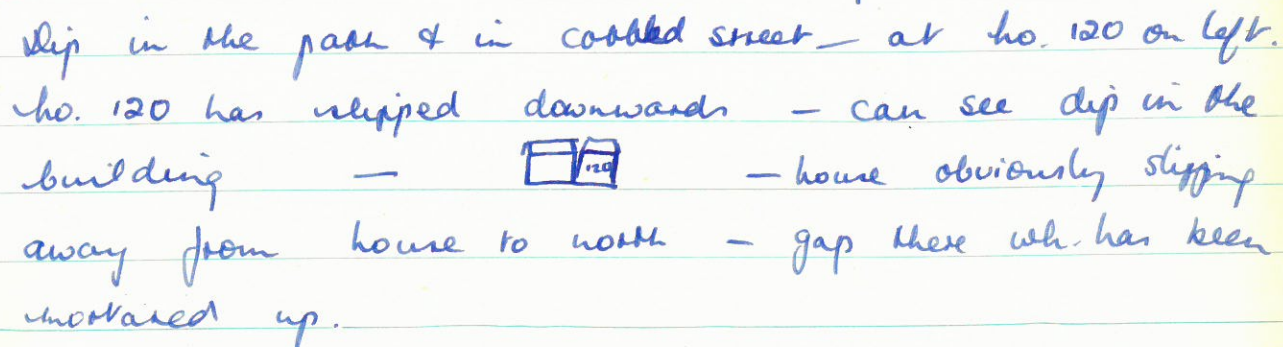 Dip in the path & in cobbled street – at no. 120 on left.
No. 120 has slipped downwards – can see dip in the
building – 120 – house obviously slipping
away from house to north – gap there wh. has been
mortared up.